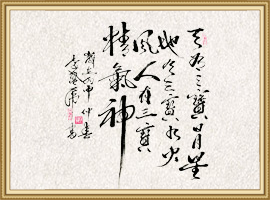 天有三寶日月星
地有三寶水火
風人有三寶
精氣神